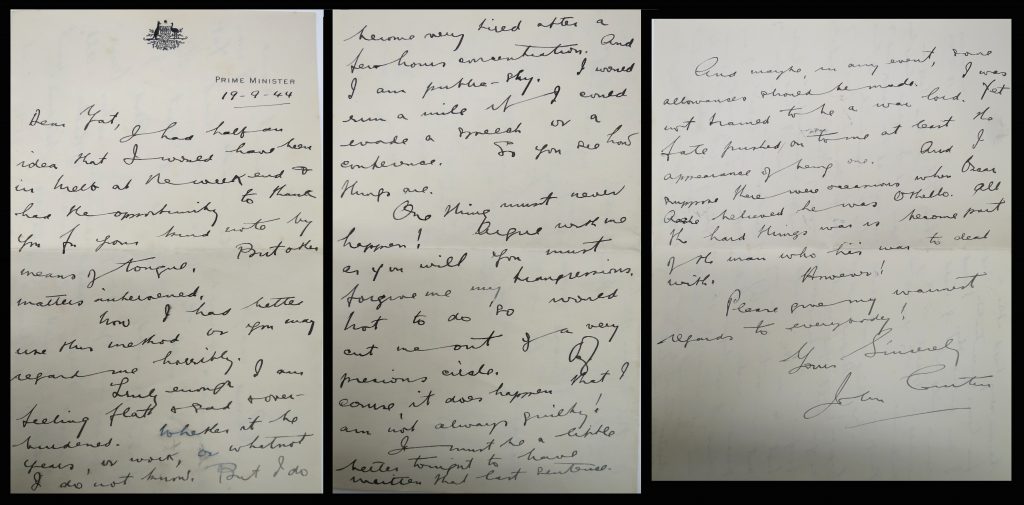 PRIME MINISTER
19-9-44
Dear Yat,
I had half an
idea that I would have been
in Melb at the week end &
had the opportunity to thank
you for your kind note by
means of tongue. But other
matters intervened.
Now I had better
use this method or you may
regard me horribly.
Truly enough I am
feeling flat & sad & over-
burdened. Whether it be
years, or work, or whatnot
I do not know. But I do
become very tired after a
few hours concentration. And
I am public-shy. I would
run a mile if I could
evade a speech or a
conference. So you see how
things are.
One thing must never
happen! Argue with me
as you will you must
forgive me my transgressions.
Not to do so would
cut me out of a very
precious circle. Of
course, it does happen that I
am not always guilty!
I must be a little
better tonight to have
written that last sentence.
And maybe, in any event, some
allowances should be made. I was
not trained to be a war lord. Yet
fate pushed on to me at least the
appearance of being one. And I
suppose there were occasions when Oscar
Asche believed he was Othello. All
the hard things was is become part
of the man who his was to deal
with. However!
Please give my warmest
regards to everybody!
Yours Sincerely
John Curtin